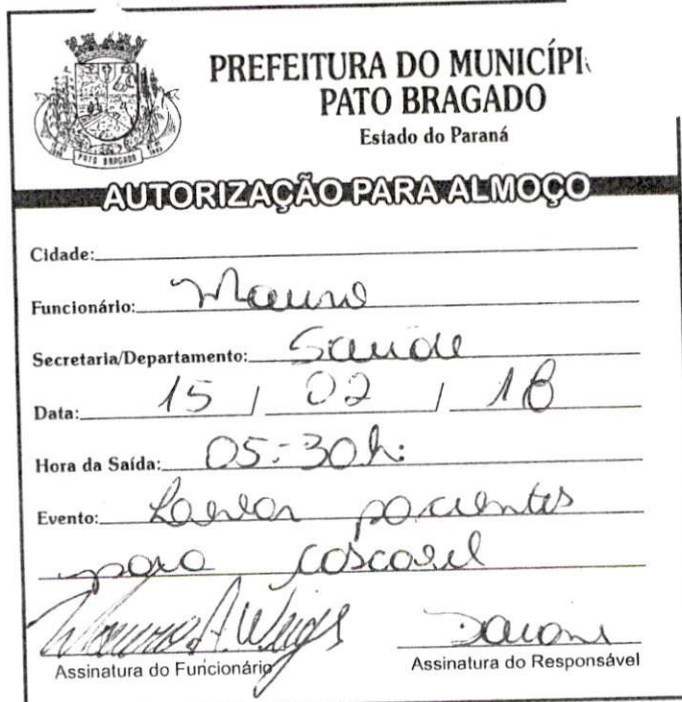 PREFEITURA DO MUNICÍPI
PATO BRAGADO
Estado do Paraná
PATO BRAGADO
AUTORIZAÇÃO PARA ALMOÇO
Cidade:
Funcionário: Mauro
Secretaria/Departamento: Saude
Data: 15 / 02 / 18
Hora da Saída: 05:30h:
Evento: Levar pacientes
para Cascavel
Mauro A. Weigs
Assinatura do Funcionário
Daiane
Assinatura do Responsável